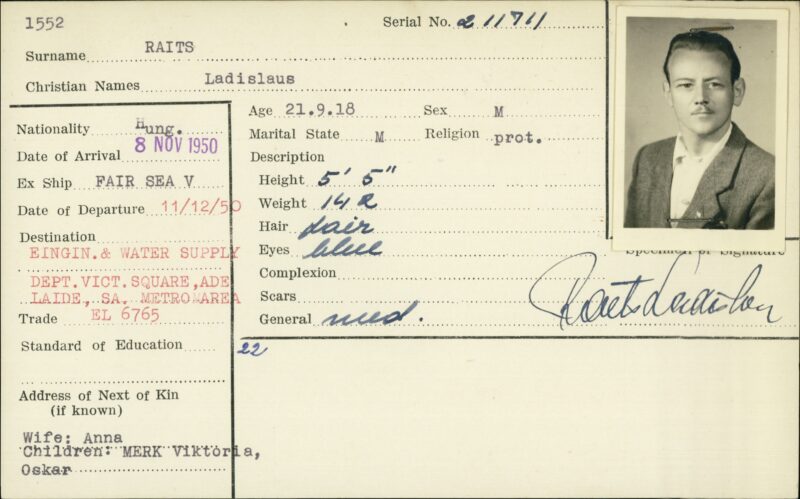 1552
Serial No. 211711
Surname RAITS
Christian Names Ladislaus
Nationality Hung.
Date of Arrival 8 NOV 1950
Ex Ship FAIR SEA V
Date of Departure 11/12/50
Destination
EINGIN.& WATER SUPPLY
DEPT.VICT.SQUARE,ADE
LAIDE, SA. METRO AREA
Trade EL 6765
Standard of Education
Address of Next of Kin
(if known)
Wife: Anna
Children: MERK Viktoria,
Oskar
Age 21.9.18 Sex M
Marital State M Religion prot.
Description
Height 5' 5"
Weight 142
Hair fair
Eyes blue
Complexion
Scars
General med.
22
Specimen of Signature
Raits Ladislau